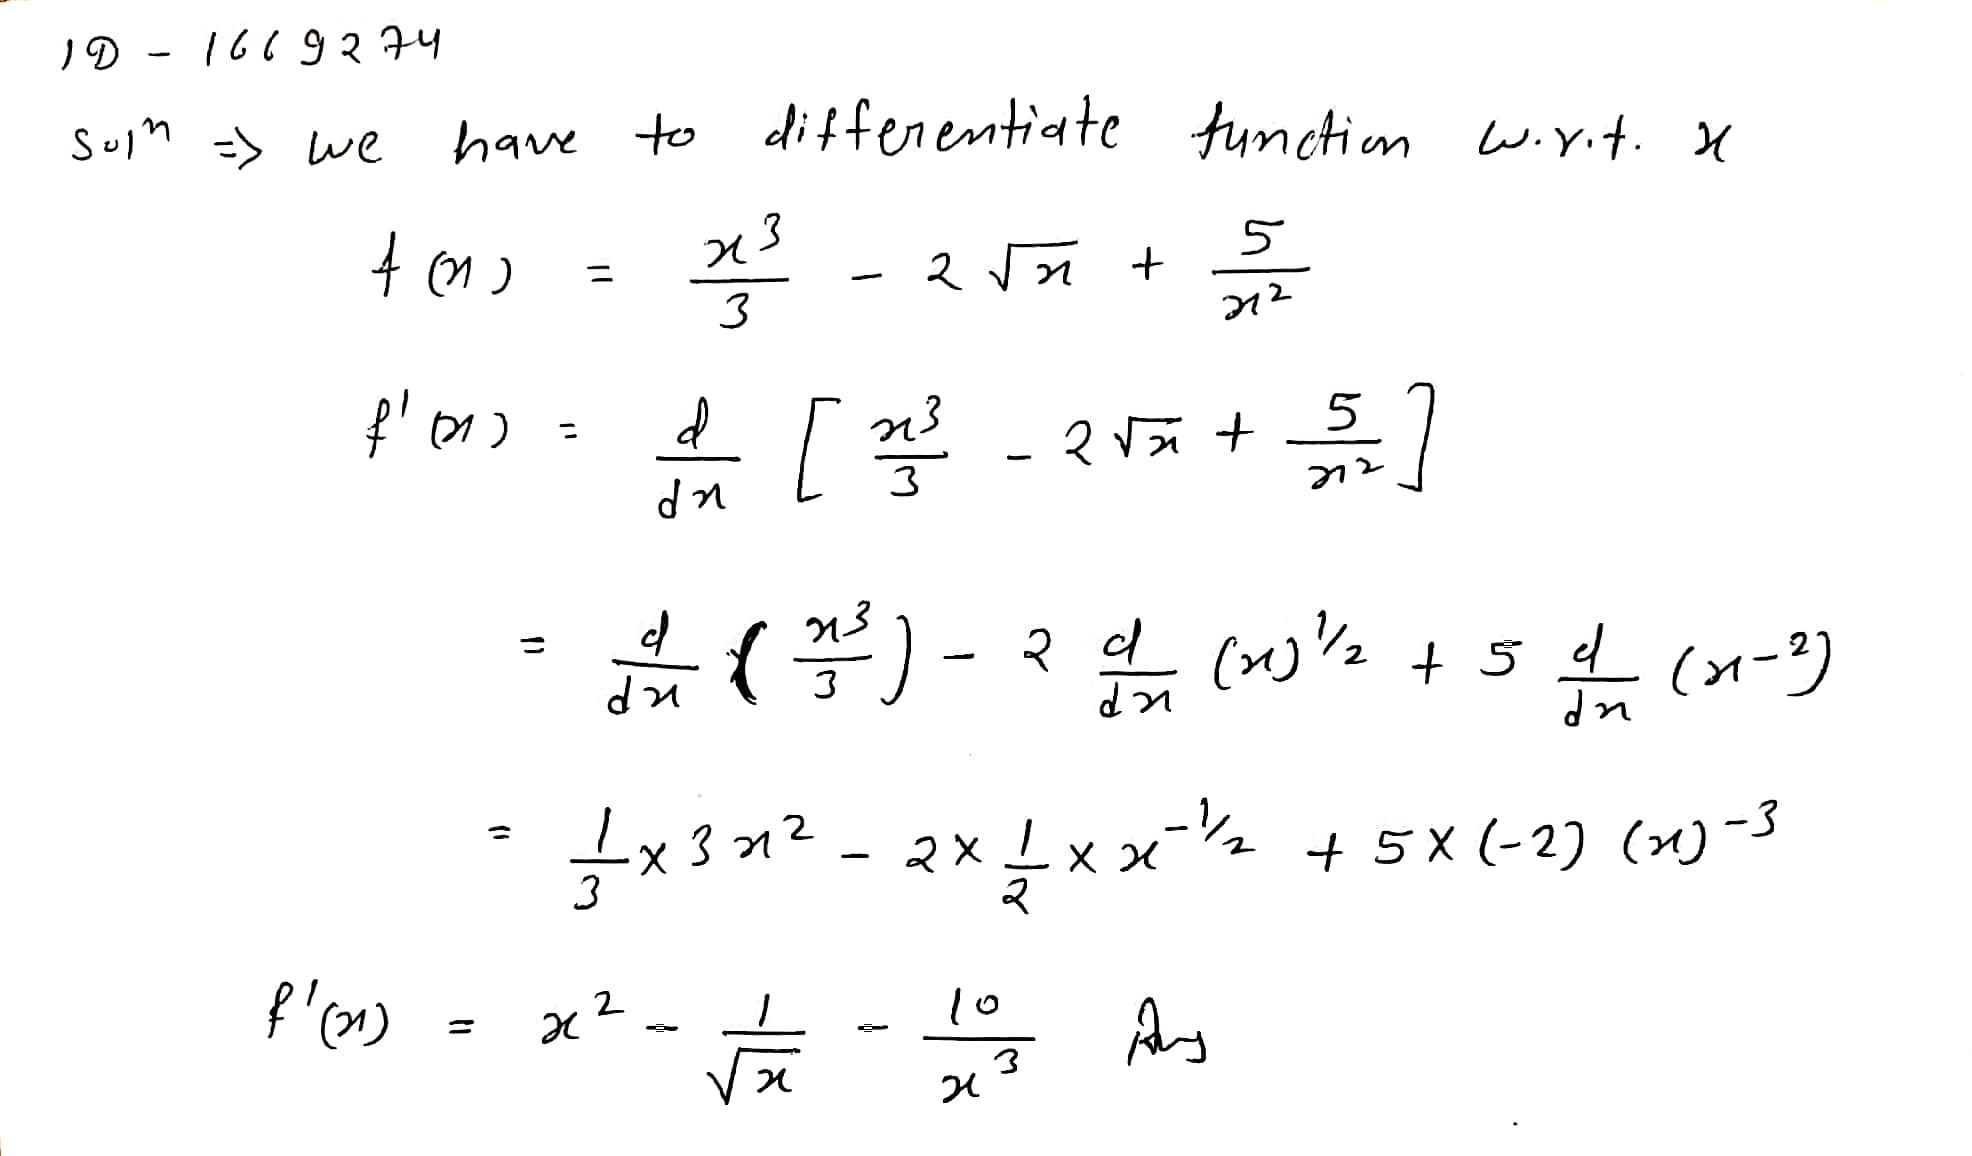 ID - 1669274
Solⁿ => we have to differentiate function w.r.t. x
f(x) = x³/3 - 2√x + 5/x²
f'(x) = d/dx [x³/3 - 2√x + 5/x²]
= d/dx (x³/3) - 2 d/dx (x)^1/2 + 5 d/dx (x^-2)
= 1/3 × 3x² - 2 × 1/2 × x^-1/2 + 5 × (-2) (x)^-3
f'(x) = x² - 1/√x - 10/x³ Ans